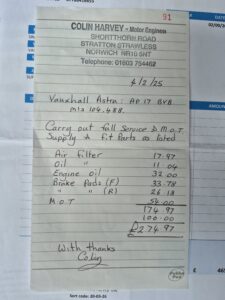 91
COLIN HARVEY - Motor Engineer
SHORTTHORN ROAD
STRATTON STRAWLESS
NORWICH NR10 5NT
Telephone: 01603 754462
4/2/25
Vauxhall Astra: AP17 BVB
mls 104.488.
Carry out full service & M.O.T.
Supply & fit Parts as listed
Air filter 17-97
Oil " 11 04
Engine oil 32 00
Brake Pads (F) 33.78
" " (R) 26 18
M.O.T 54-00
174.97
100.00
£274.97
With thanks
Colin
Sort code: 20-03-25